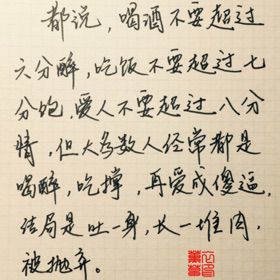 都说，喝酒不要超过
六分醉，吃饭不要超过七
分饱，爱人不要超过八分
情，但大多数人经常都是
喝醉，吃撑，再爱成傻逼，
结局是吐一身，长一堆肉，
被抛弃。